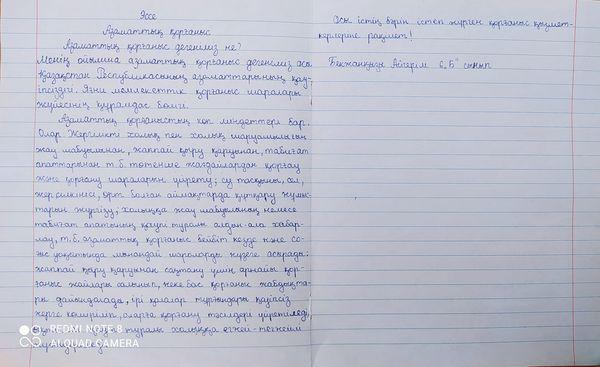 Эссе
Азаматтық қорғаныс
Азаматтық қорғаныс дегеніміз не?
Менің ойымша азаматтық қорғаныс дегеніміз осы
Қазақстан Республикасының азаматтарының қау-
іпсіздігі. Яғни мемлекеттік қорғаныс шаралары
жүйесінің құрамдас бөлігі.
Азаматтық қорғаныстың көп міндеттері бар.
Олар Жергілікті халық пен халық шаруашылығын
жау шабуылынан, жаппай қыру қаруынан, табиғат
апаттарынан т.б. төтенше жағдайлардан қорғау
және қорғану шараларын үйрету; су тасқыны, сел,
жер сілкінісі, өрт болған аймақтарда құтқару жұмыс-
тарын жүргізу; халыққа жау шабуылының немесе
табиғат апатының қаупі туралы алдын-ала хабар-
лау, т.б. азаматтық қорғаныс бейбіт кезде және со-
ғыс уақытында мынандай шараларды жүзеге асырады:
жаппай қыру қаруынан сақтану үшін арнайы қор-
ғаныс жайлары салынып, жеке бас қорғаныс жабдықта-
ры дайындалады, ірі қалалар тұрғындары қауіпсіз
жерге көшіріліп, оларға қорғану тәсілдері үйретіледі,
туралы халыққа егжей-тегжейлі
Осы істің бәрін істеп жүрген қорғаныс қызмет-
керлеріне рахмет!
Бекжанқызы Айгерім 6 "Б" сынып
REDMI NOTE 8
AI QUAD CAMERA